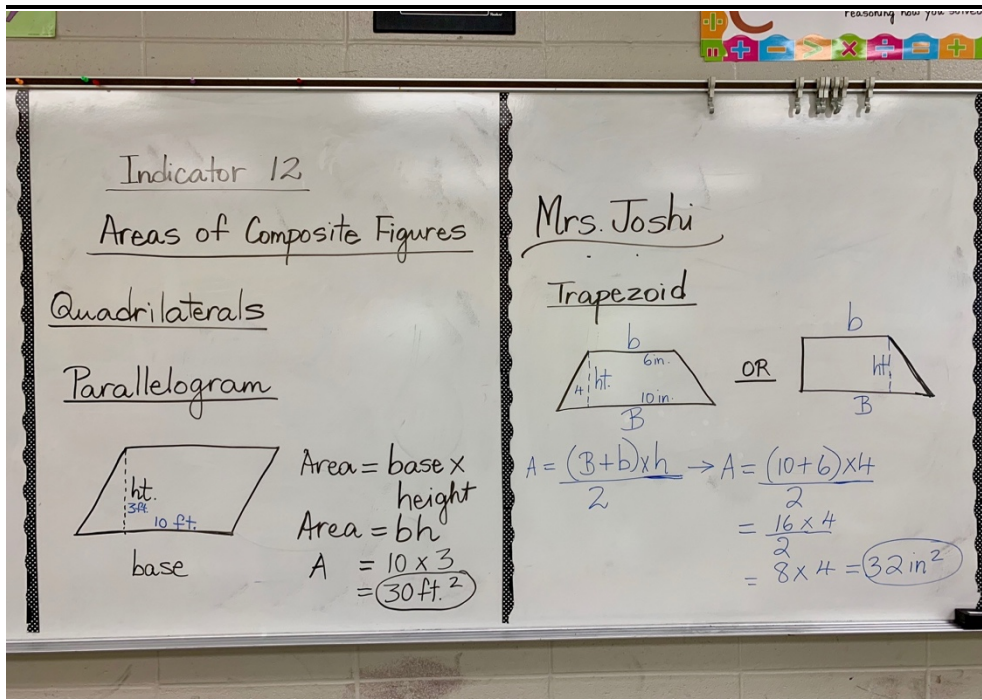 reasoning how you solved
Indicator 12
Areas of Composite Figures
Quadrilaterals
Parallelogram
ht.
3ft.
10 ft.
base
Area = base x
height
Area = bh
A = 10 x 3
= 30 ft.²
Mrs. Joshi
Trapezoid
b
6in.
4
ht.
10 in.
B
OR
b
ht.
B
A = (B+b)xh / 2 → A = (10+6)x4 / 2
= 16 x 4 / 2
= 8 x 4 = 32 in²